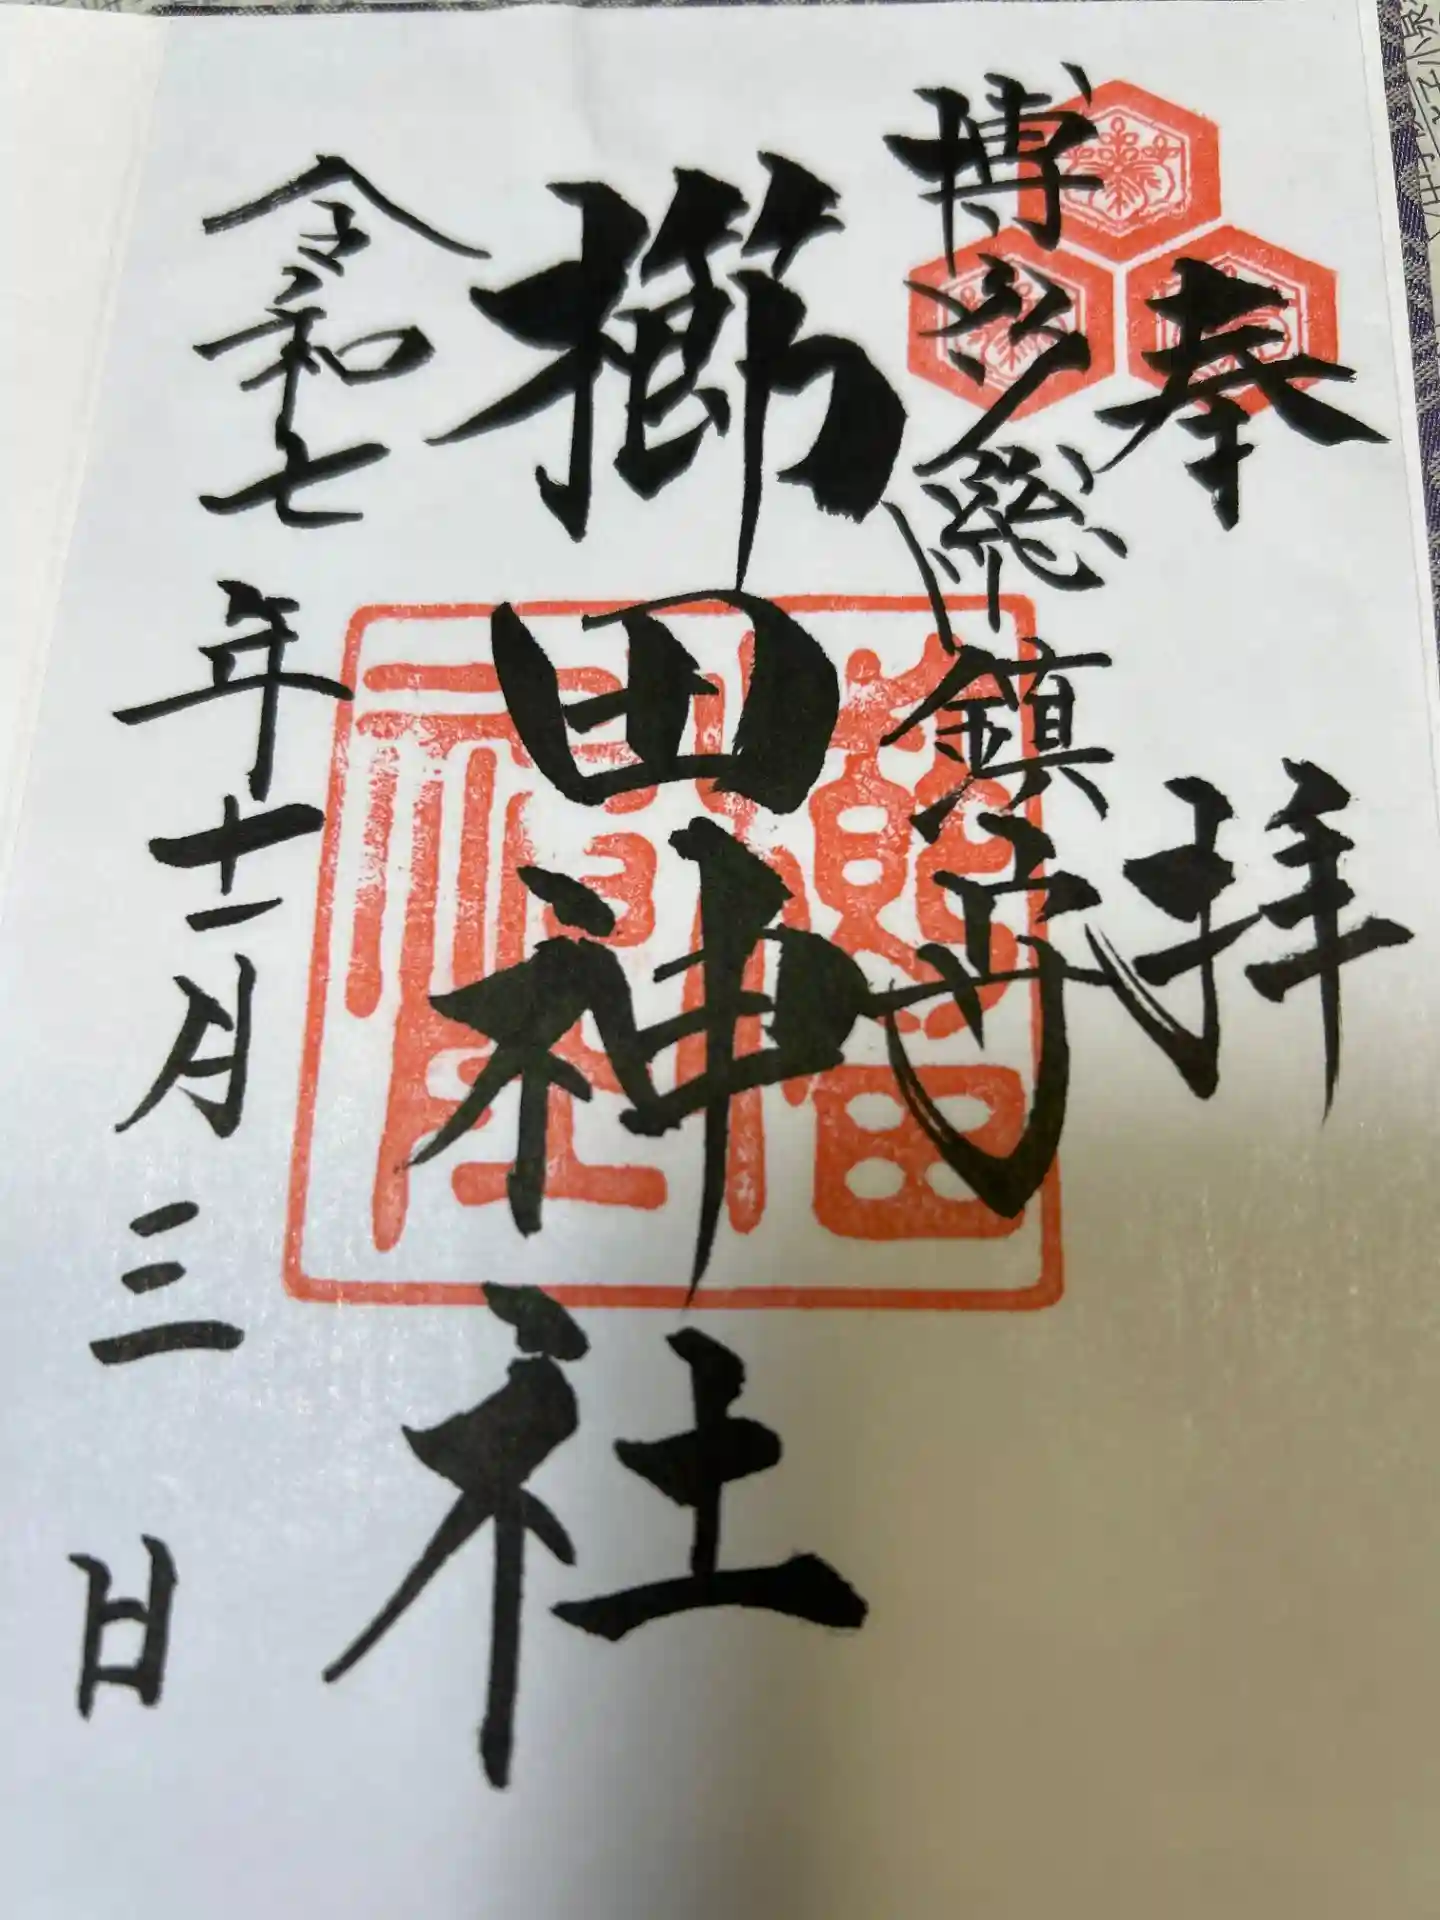 奉拝
博多総鎮守
櫛田神社
令和七年十一月三日